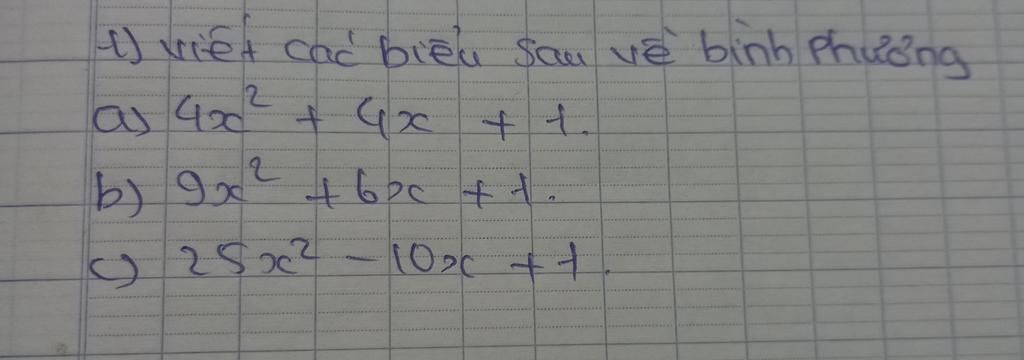 1) viết các biểu sau về bình phương
a) 4x² + 4x + 1.
b) 9x² + 6x + 1.
c) 25x² - 10x + 1.